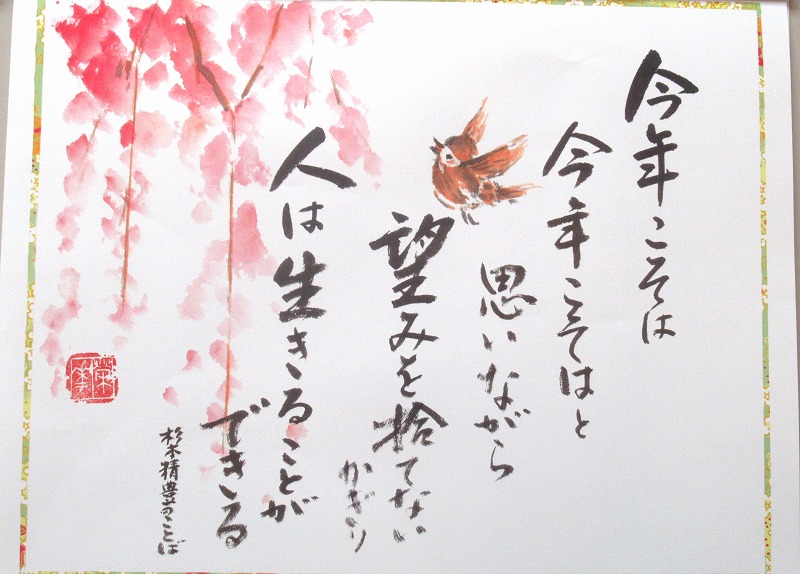 今年こそは
今年こそはと
思いながら
望みを捨てない
かぎり
人は生きることが
できる
杉木精豊のことば